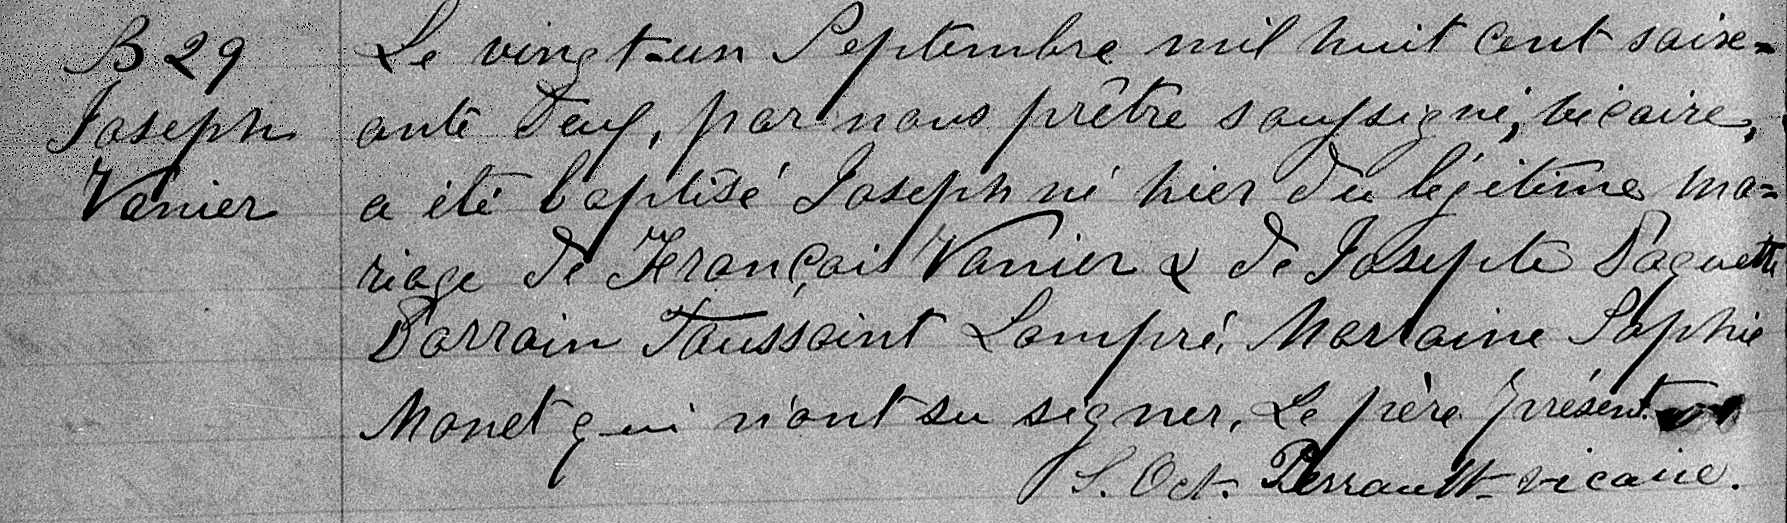 B 29
Joseph
Vanier
Le vingt-un Septembre mil huit cent soix=
ante deux, par nous prêtre soussigné, vicaire,
a été baptisé Joseph né hier du légitime ma=
riage de François Vanier & de Josepte Paquette
Parrain Toussaint Lompré, Marraine Sophie
Monet qui n'ont su signer. Le père présent.
S. Oct. Perrault vicaire.